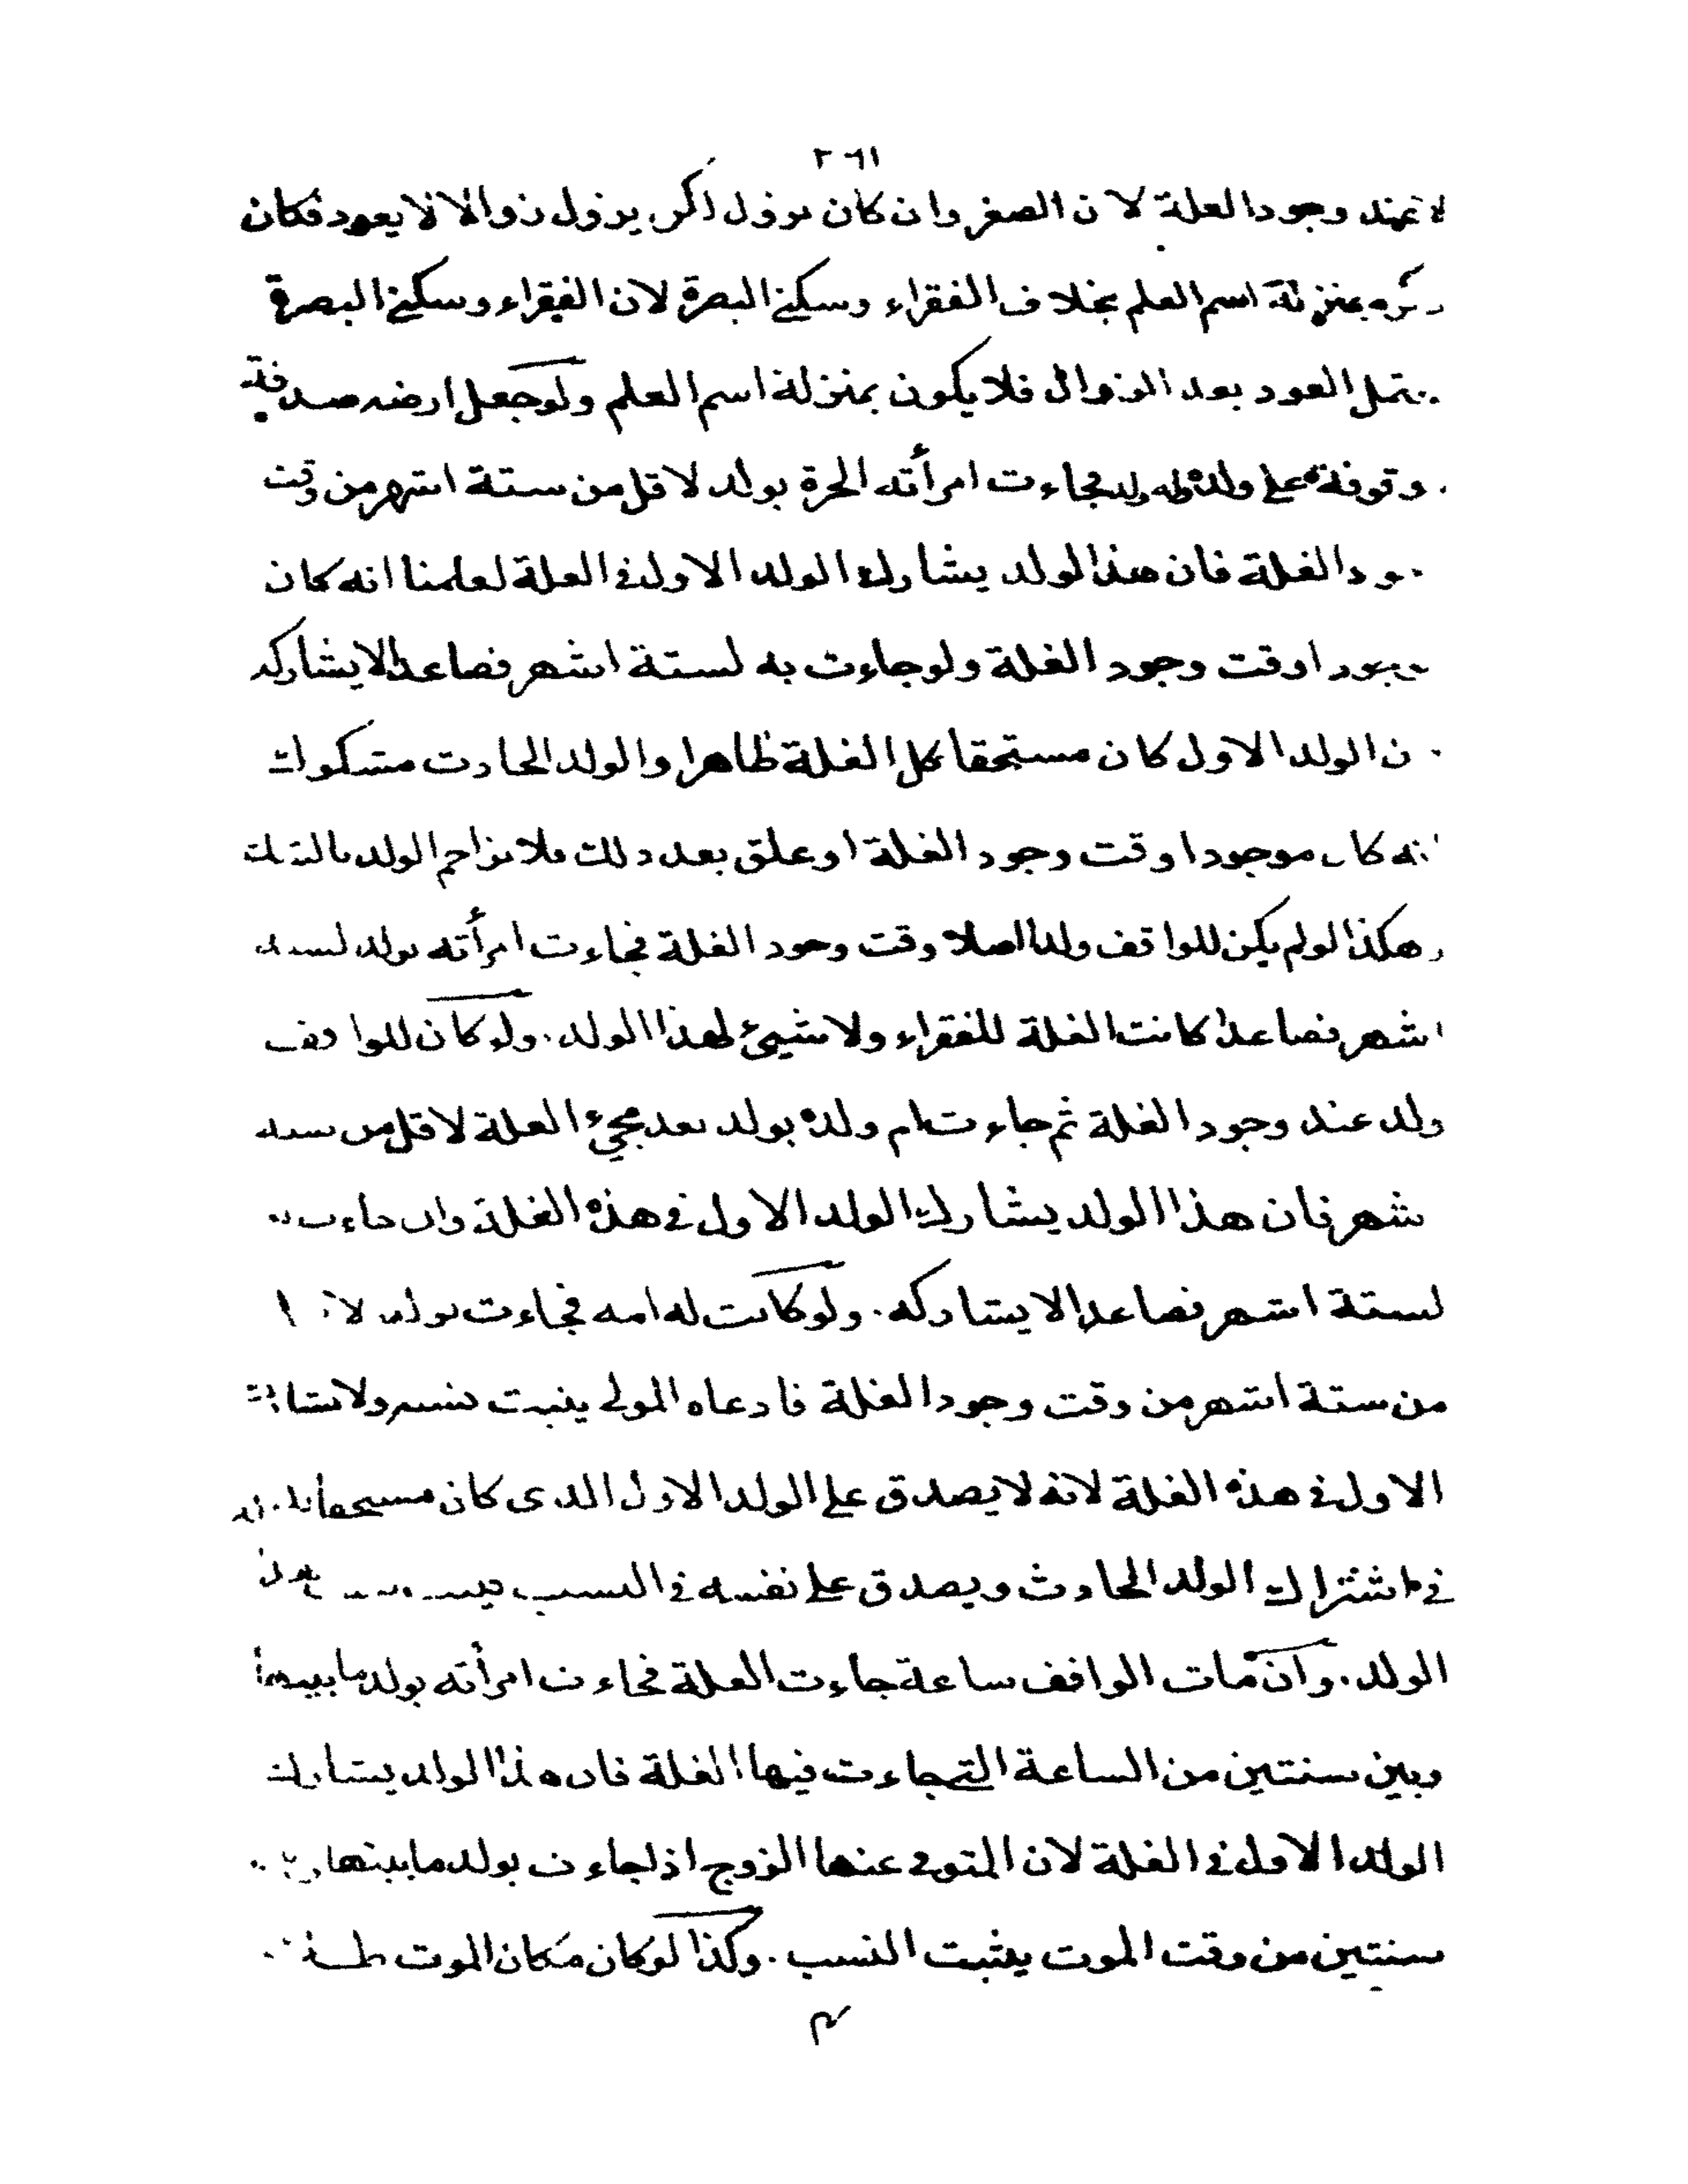 ٢٦١
لا عند وجود الغلة لان الصغر وان كان يزول لكن يزول زوالا لا يعود فكان
بمنزلة اسم العلم بخلاف الفقراء وسكنى البصرة لان الفقراء وسكنى البصرة
يحتمل العود بعد الزوال فلا يكون بمنزلة اسم العلم ولو جعل ارضه صدقة
موقوفة على ولده وله ولد فجاءت امرأته الحرة بولد لاقل من ستة اشهر من وقت
وجود الغلة فان هذا الولد يشارك الولد الاول فى الغلة لعلمنا انه كان
موجودا وقت وجود الغلة ولو جاءت به لستة اشهر فصاعدا لا يشاركه
لان الولد الاول كان مستحقا كل الغلة ظاهرا والولد الحادث مشكوك
انه كان موجودا وقت وجود الغلة او علق بعد ذلك فلا يزاحم الولد بالشك
وهكذا لو لم يكن للواقف ولد اصلا وقت وجود الغلة فجاءت امرأته بولد لستة
اشهر فصاعدا كانت الغلة للفقراء ولا شيئ لهذا الولد. ولو كان للواقف
ولد عند وجود الغلة ثم جاءت ام ولده بولد بعد مجيء الغلة لاقل من ستة
اشهر فان هذا الولد يشارك الولد الاول فى هذه الغلة وان جاءت به
لستة اشهر فصاعدا لا يشاركه. ولو كانت له امه فجاءت بولد لا
من ستة اشهر من وقت وجود الغلة فادعاه المولى يثبت نسبه ولا
الاول فى هذه الغلة لانه لا يصدق على الولد الاول الذى كان مستحقا
فى اشتراك الولد الحادث ويصدق على نفسه فى النسب
الولد. وان مات الواقف ساعة جاءت الغلة فجاءت امرأته بولد ما بينها
وبين سنتين من الساعة التى جاءت فيها الغلة فان هذا الولد يشارك
الولد الاول فى الغلة لان المتوفى عنها الزوج اذا جاءت بولد ما بينها
سنتين من وقت الموت يثبت النسب. وكذا لو كان مكان الموت